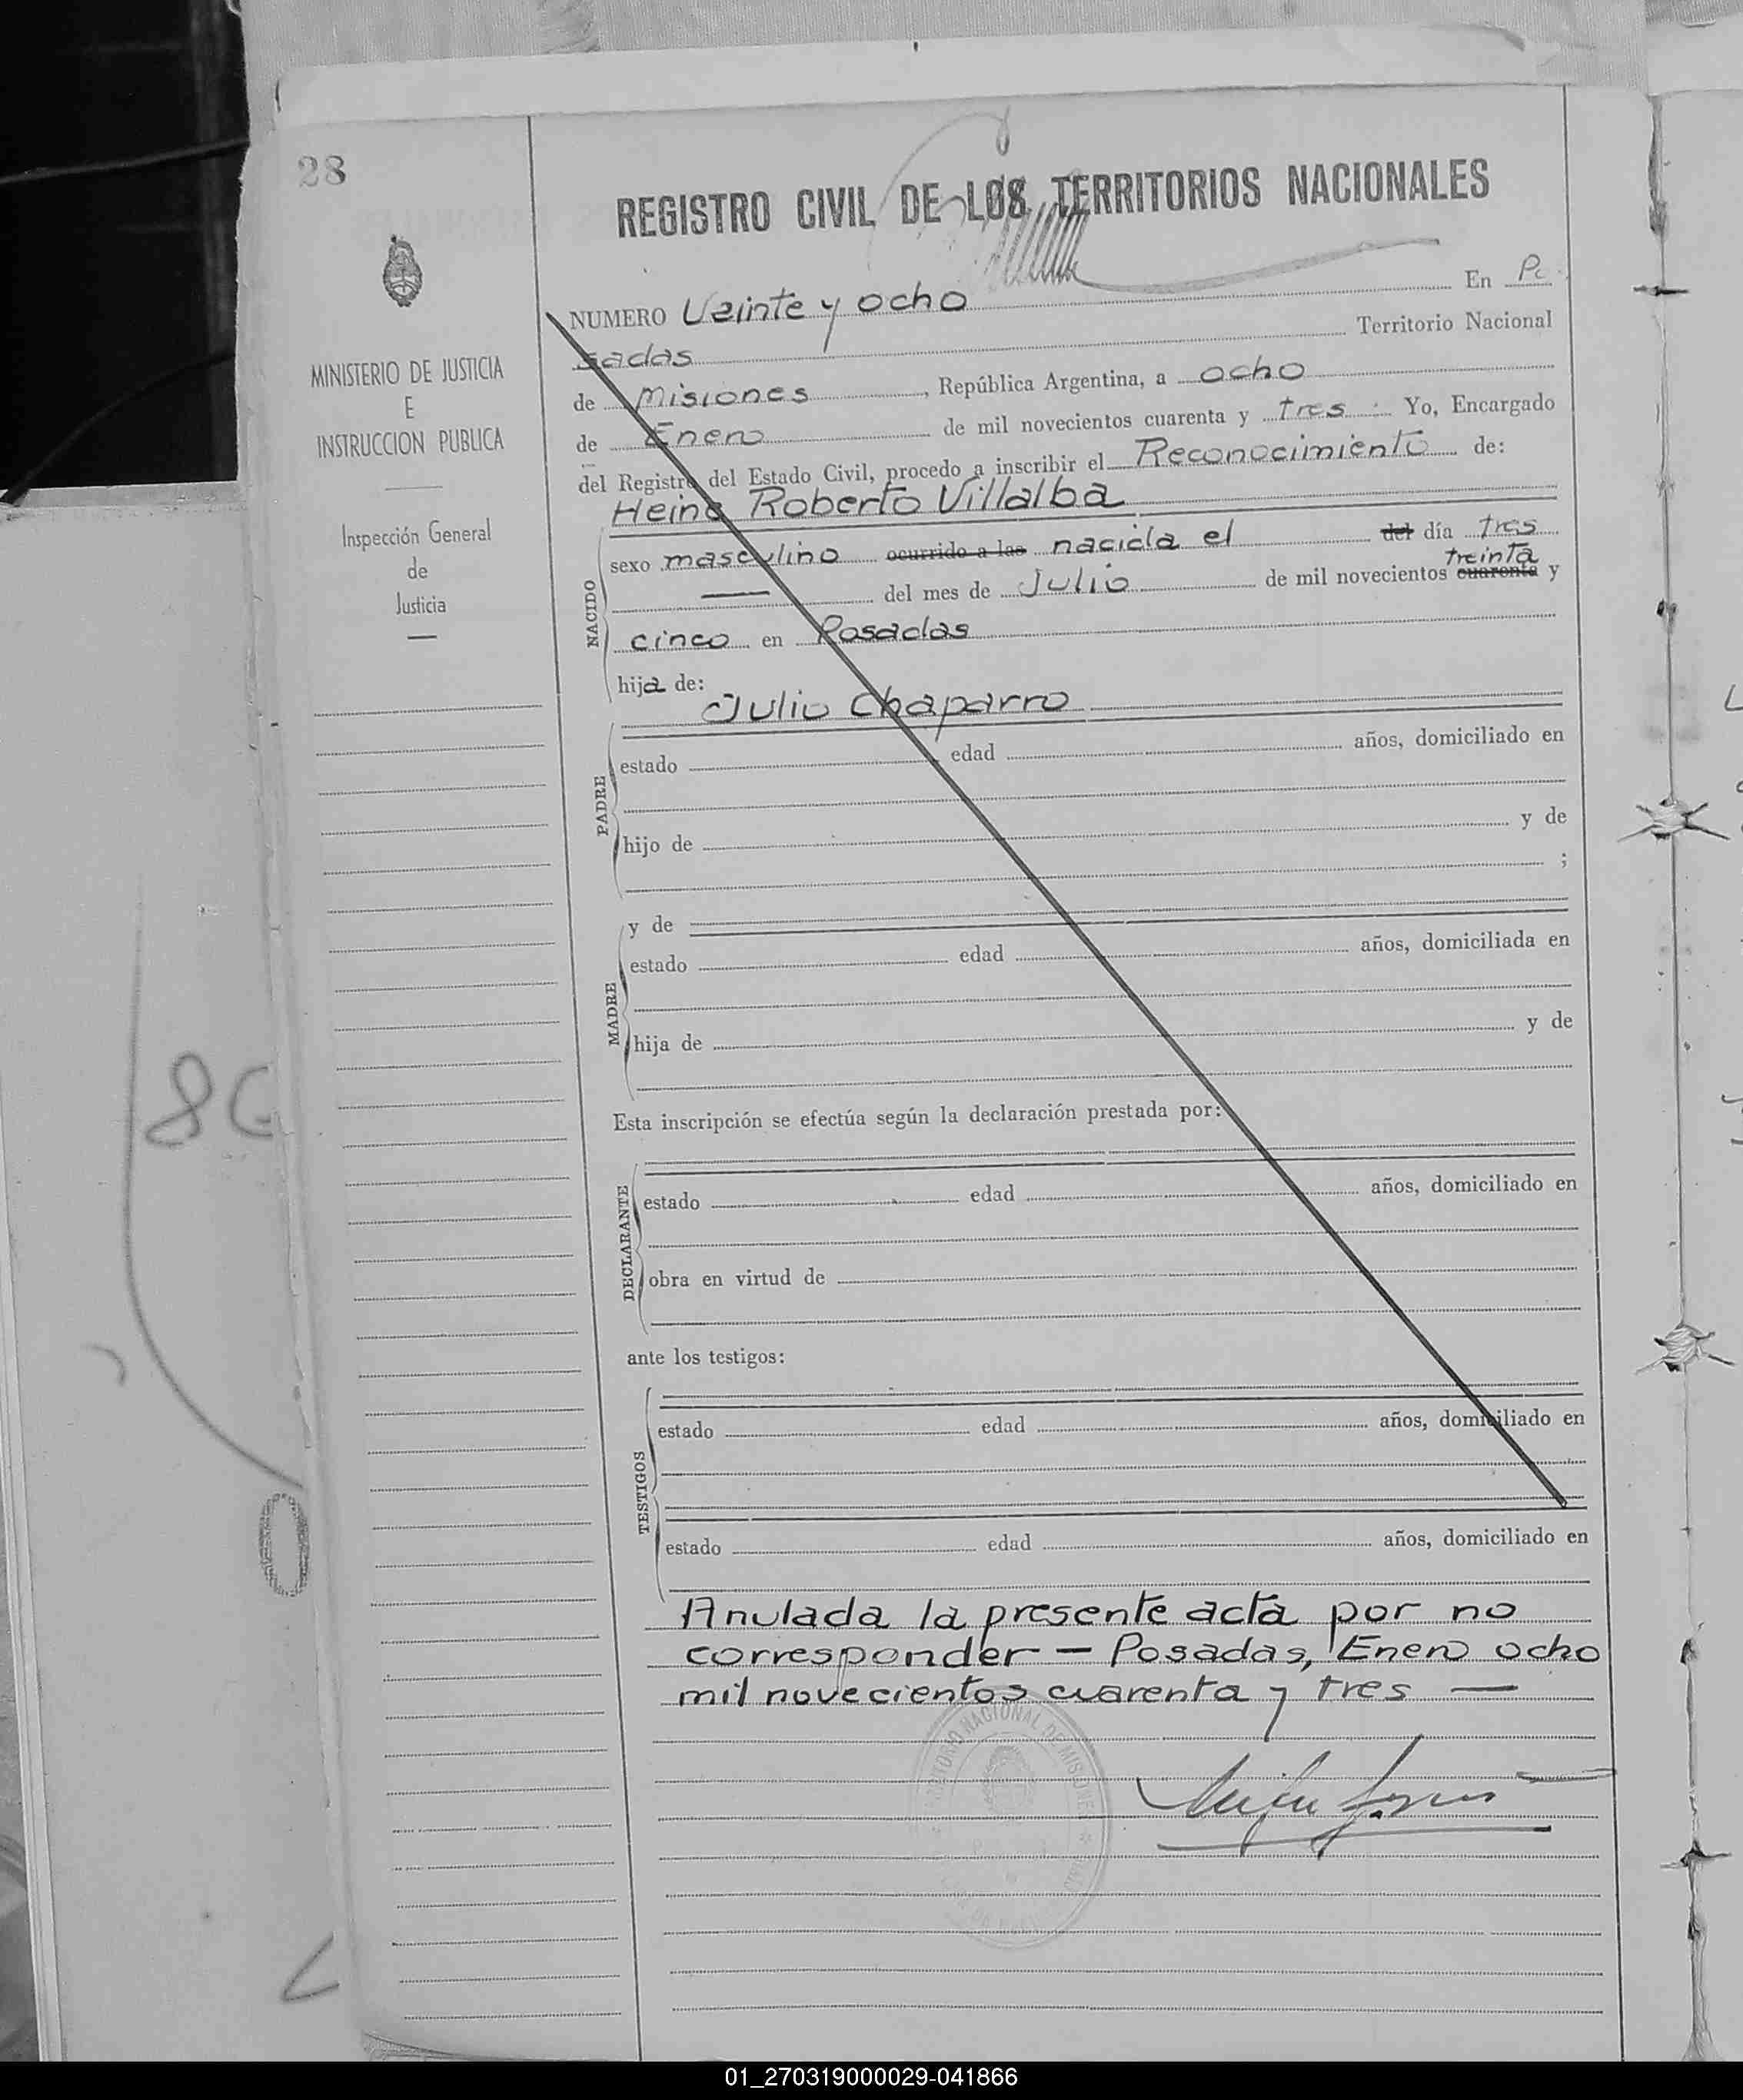 28
REGISTRO CIVIL DE LOS TERRITORIOS NACIONALES
MINISTERIO DE JUSTICIA
E
INSTRUCCION PUBLICA
Inspección General
de
Justicia
NUMERO Veinte y ocho En Po
sadas Territorio Nacional
de Misiones, República Argentina, a ocho
de Enero de mil novecientos cuarenta y tres Yo, Encargado
del Registro del Estado Civil, procedo a inscribir el Reconocimiento de:
Heine Roberto Villalba
NACIDO
sexo masculino ocurrido a las nacida el del día tres
treinta
del mes de Julio de mil novecientos cuarenta y
cinco en Posadas
hija de:
Julio Chaparro
PADRE
estado edad años, domiciliado en
hijo de y de
;
MADRE
y de
estado edad años, domiciliada en
hija de y de
Esta inscripción se efectúa según la declaración prestada por:
DECLARANTE
estado edad años, domiciliado en
obra en virtud de
ante los testigos:
TESTIGOS
estado edad años, domiciliado en
estado edad años, domiciliado en
Anulada la presente acta por no
corresponder — Posadas, Enero ocho
mil novecientos cuarenta y tres —
NACIONAL DE MISIONES
01_270319000029-041866